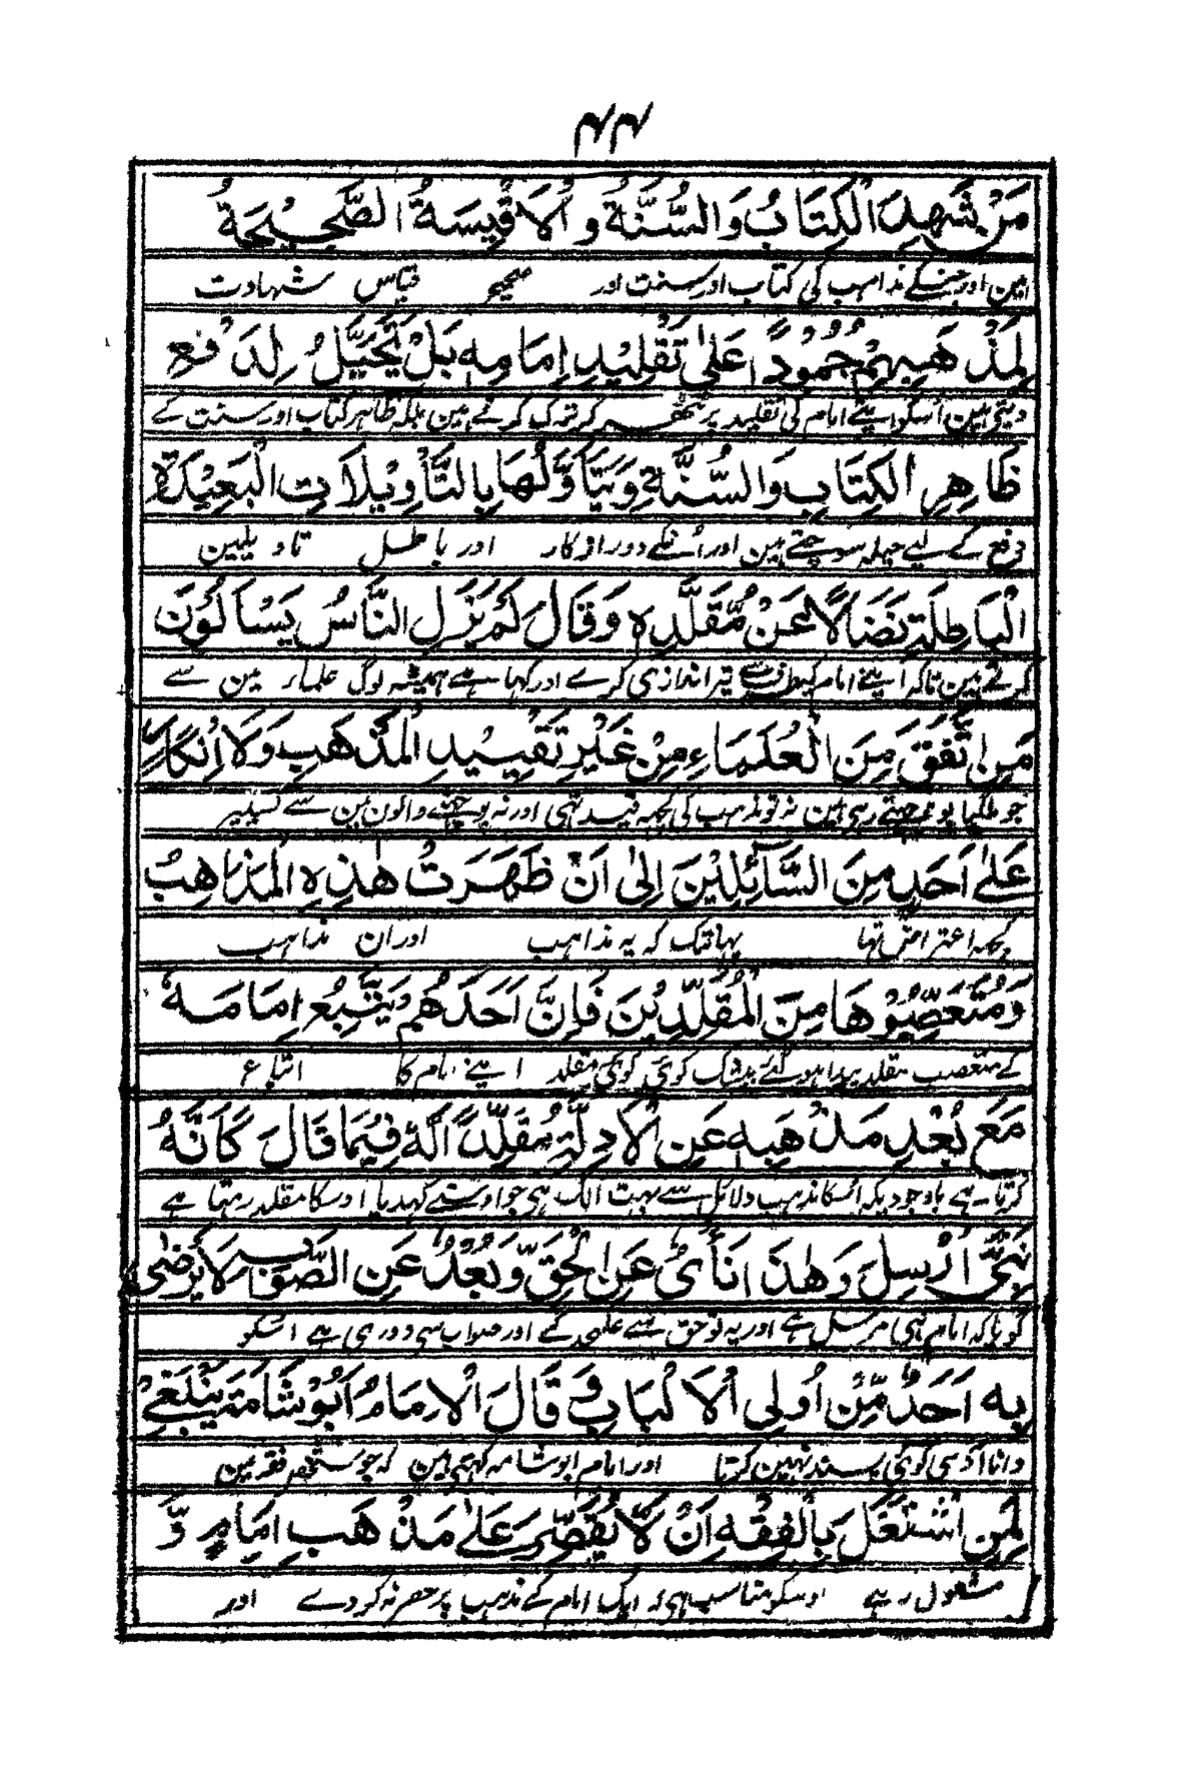 ۴۴
مَنْ شَهِدَ الْكِتَابُ وَالسُّنَّةُ وَالْاَقْيِسَةُ الصَّحِيْحَةُ
ہین اور جنکے مذاہب کی کتاب اور سنت اور صحیح قیاس شہادت
لِمَذْهَبِهِمْ جُمُوْدًا عَلٰى تَقْلِيْدِ اِمَامِهٖ بَلْ يَتَحَيَّلُ لِدَفْعِ
دیتی ہین اسکو اپنے امام کی تقلید پر کر ترک کرتے ہین بلکہ ظاہر کتاب اور سنت کے
ظَاهِرِ الْكِتَابِ وَالسُّنَّةِ وَيَتَأَوَّلُهَا بِالتَّأْوِيْلَاتِ الْبَعِيْدَةِ
دفع کے لیے حیلہ سوچتے ہین اور اُنکے دور از کار اور باطل تاویلین
الْبَاطِلَةِ نِضَالًا عَنْ مُّقَلَّدِهٖ وَقَالَ لَمْ يَزَلِ النَّاسُ يَسْاَلُوْنَ
کرتے ہین تاکہ اپنے امام کیطرف سے تیر اندازی کرے اور کہا ہے ہمیشہ لوگ علماء مین سے
مَنِ اتَّفَقَ مِنَ الْعُلَمَاءِ مِنْ غَيْرِ تَقْيِيْدِ الْمَذْهَبِ وَلَا اِنْكَارٍ
جو ملگیا پوچھتے رہی ہین نہ تو مذہب کی کچھ قید تھی اور نہ پوچھنے والون مین سے کسیپر
عَلٰى اَحَدٍ مِنَ السَّآئِلِيْنَ اِلٰى اَنْ ظَهَرَتْ هٰذِهِ الْمَذَاهِبُ
کچھ اعتراض تھا یہانتک کہ یہ مذاہب اور ان مذاہب
وَمُتَعَصِّبُوْهَا مِنَ الْمُقَلِّدِيْنَ فَاِنَّ اَحَدَهُمْ يَتَّبِعُ اِمَامَهٗ
کے متعصب مقلد پیدا ہو گئے بیشک کوئی کوئی مقلد اپنے امام کا اتباع
مَعَ بُعْدِ مَذْهَبِهٖ عَنِ الْاَدِلَّةِ مُقَلِّدًا لَهٗ فِيْمَا قَالَ كَاَنَّهٗ
کرتا ہے باوجودیکہ اسکا مذہب دلائل سے بہت الگ ہی جو اوسنے کہدیا اوسکا مقلد رہتا ہے
نَبِيٌّ اُرْسِلَ وَهٰذَا نَأْىٌ عَنِ الْحَقِّ وَبُعْدٌ عَنِ الصَّوَابِ لَا يَرْضٰى
گویا کہ امام نبی مرسل ہے اور یہ تو حق سے علیحدگے اور صواب سی دوری ہے اسکو
بِهٖ اَحَدٌ مِّنْ اُولِى الْاَلْبَابِ وَقَالَ الْاِمَامُ اَبُوْ شَامَةَ يَنْبَغِىْ
دانا آدمی کوئی پسند نہین کرتا اور امام ابو شامہ کہتے ہین کہ جو شخص فقہ مین
لِمَنِ اشْتَغَلَ بِالْفِقْهِ اَنْ لَّا يَقْتَصِرَ عَلٰى مَذْهَبِ اِمَامٍ وَّ
مشغول رہے اوسکو مناسب ہی کہ ایک امام کے مذہب پر حصر نہ کر دے اور